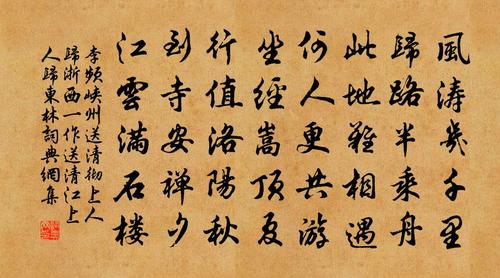 風濤幾千里
歸路半乘舟
此地難相遇
何人更共游
坐經嵩頂夏
行值洛陽秋
到寺安禪夕
江雲滿石楼
李頻峽州送清彻上人
歸浙西一作送清江上
人歸東林詞典網集